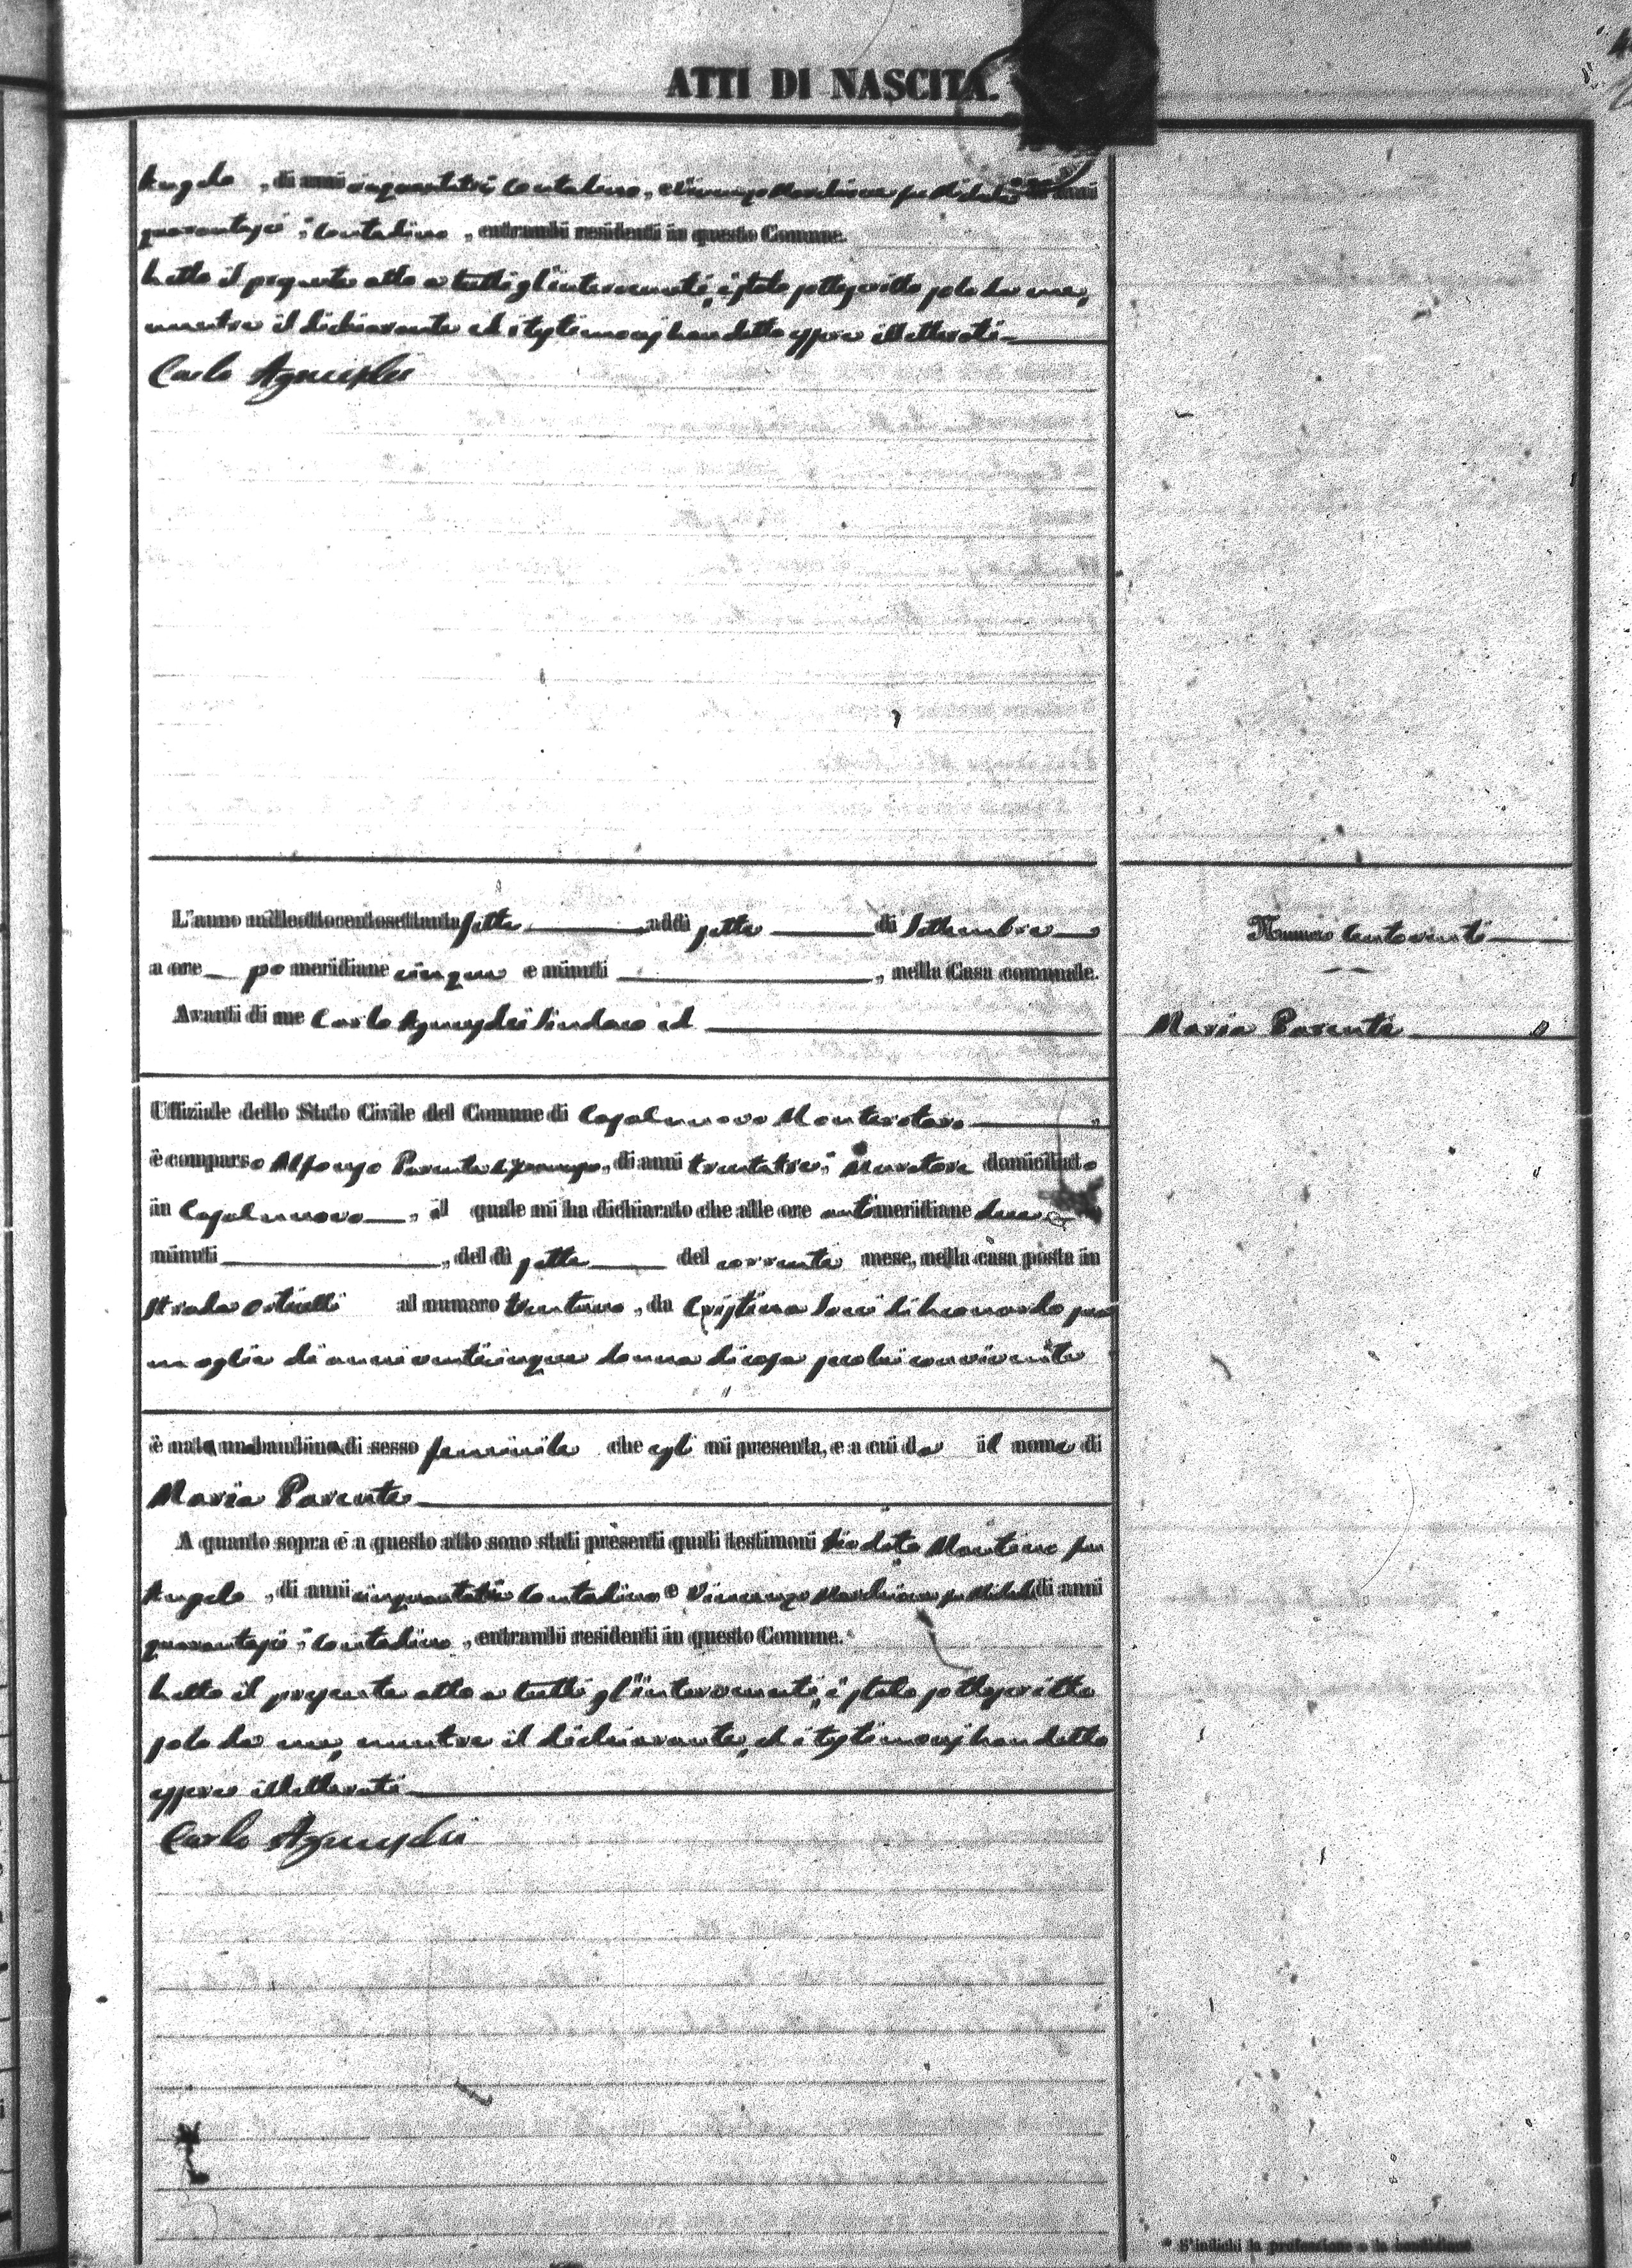 ATTI DI NASCITA.
Angelo, di anni cinquantatrè, Contadino, e Vincenzo Marchione fu Michele di anni
quarantasei, Contadino, entrambi residenti in questo Comune.
Letto il presente atto a tutti gl'intervenuti, è stato sottoscritto solo da me,
mentre il dichiarante ed i testimonj han detto essere illetterati
Carlo
L'anno milleottocentosettantasette addì sette di Settembre
a ore pomeridiane cinque e minuti , nella Casa comunale.
Avanti di me Carlo Sindaco ed
Numero Centoventi
Maria Parente
Uffiziale dello Stato Civile del Comune di Casalnuovo Monterotaro
è comparso Alfonso Parente , di anni trentatre, Muratore domiciliato
in Casalnuovo, il quale mi ha dichiarato che alle ore antimeridiane due e
minuti , del dì sette del corrente mese, nella casa posta in
Strada Orticelli al numero trentuno, da Cristina di Leonardo sua
moglie di anni venticinque donna di casa seco lui convivente
è nata una bambina di sesso femminile che egli mi presenta, e a cui da il nome di
Maria Parente
A quanto sopra e a questo atto sono stati presenti quali testimoni Diodato fu
Angelo, di anni cinquantatrè Contadino e Vincenzo Marchione fu Michele di anni
quarantasei, Contadino, entrambi residenti in questo Comune.
Letto il presente atto a tutti gl'intervenuti, è stato sottoscritto
solo da me, mentre il dichiarante, ed i testimonj han detto
essere illetterati
Carlo
* S'indichi la professione o la condizione